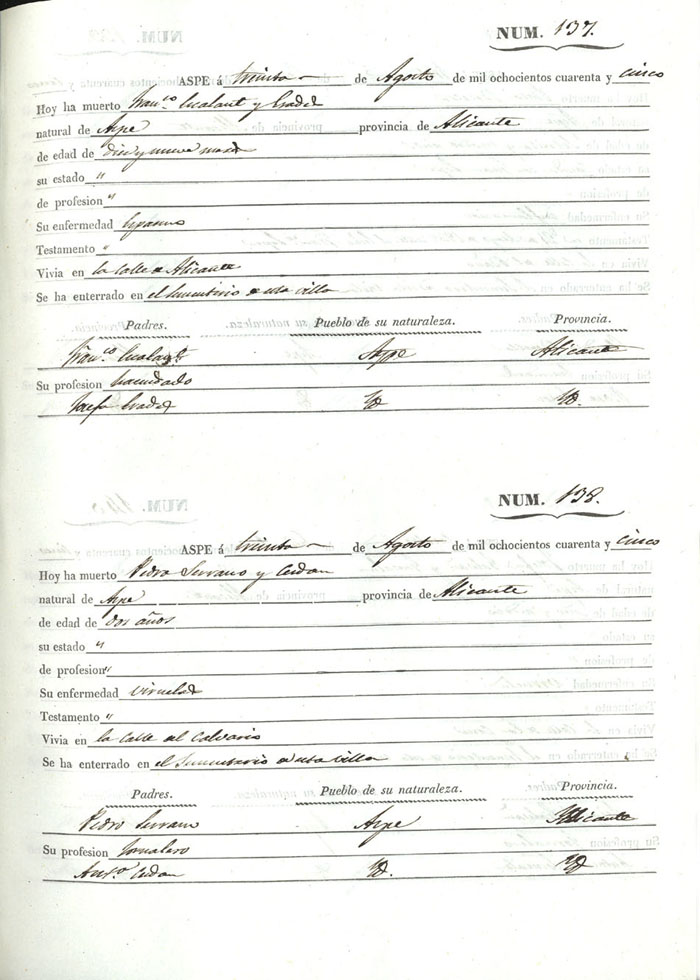 NUM. 137.
ASPE á treinta de Agosto de mil ochocientos cuarenta y cinco
Hoy ha muerto Fran.co Escalant y
natural de Aspe provincia de Alicante
de edad de diez y nueve meses
su estado "
de profesion "
Su enfermedad Espasmo
Testamento "
Vivia en la Calle de Alicante
Se ha enterrado en el Sementerio de esta villa
Padres. Pueblo de su naturaleza. Provincia.
Fran.co Aspe Alicante
Su profesion hacendado
Josefa Yd. Yd.
NUM. 138.
ASPE á treinta de Agosto de mil ochocientos cuarenta y cinco
Hoy ha muerto Pedro Serrano y Cerdan
natural de Aspe provincia de Alicante
de edad de dos años
su estado "
de profesion "
Su enfermedad Viruelas
Testamento "
Vivia en la Calle del Calvario
Se ha enterrado en el Sementerio de esta Villa
Padres. Pueblo de su naturaleza. Provincia.
Pedro Serrano Aspe Alicante
Su profesion Jornalero
Ant.a Cerdan Yd. Yd